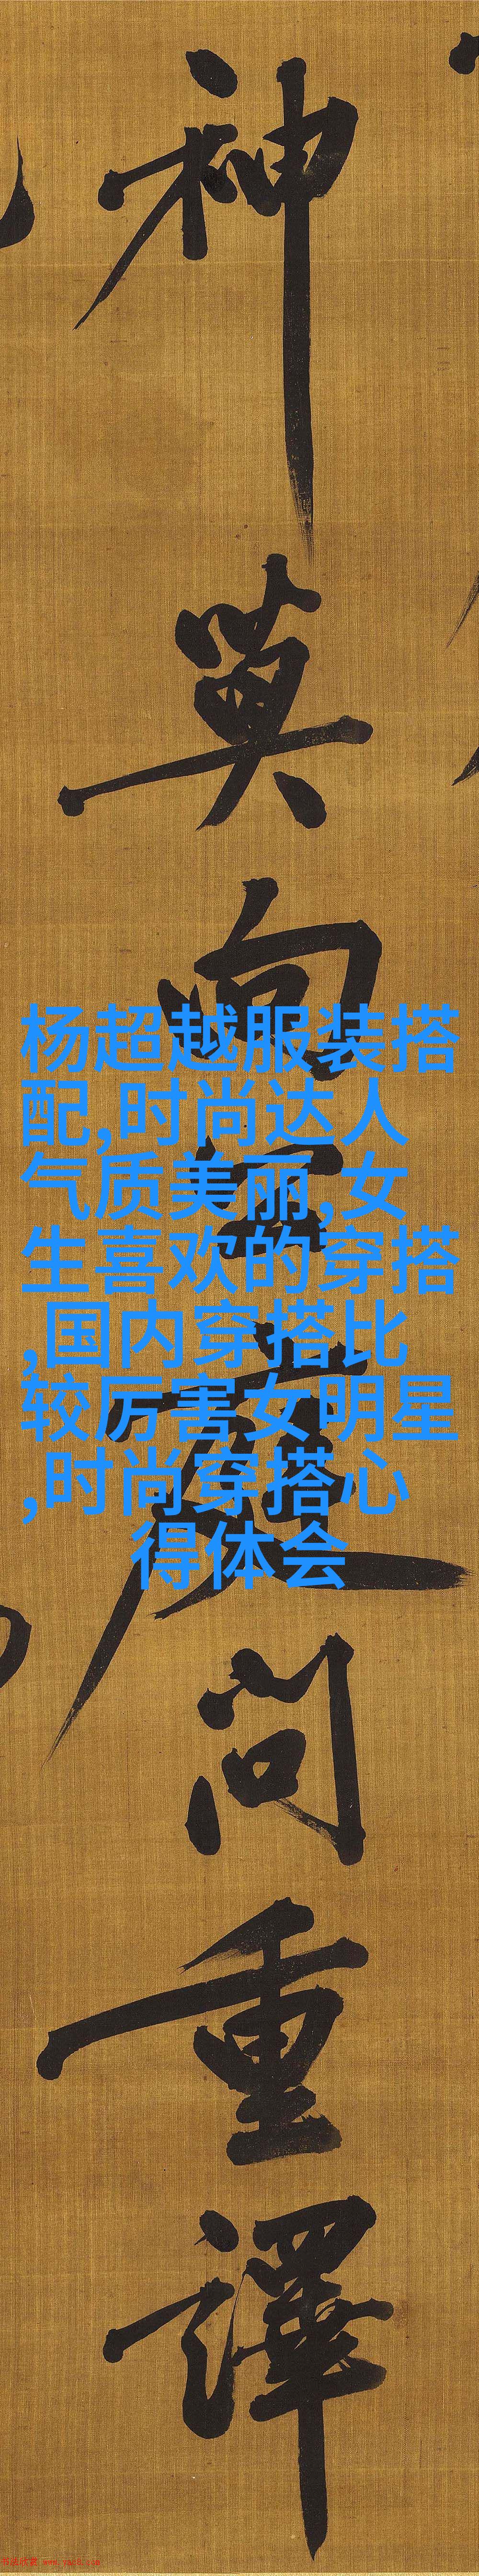 神向問重譯
杨超越服装搭
配,时尚达人
气质美丽,女
生喜欢的穿搭
,国内穿搭比
较厉害女明星
,时尚穿搭心
得体会